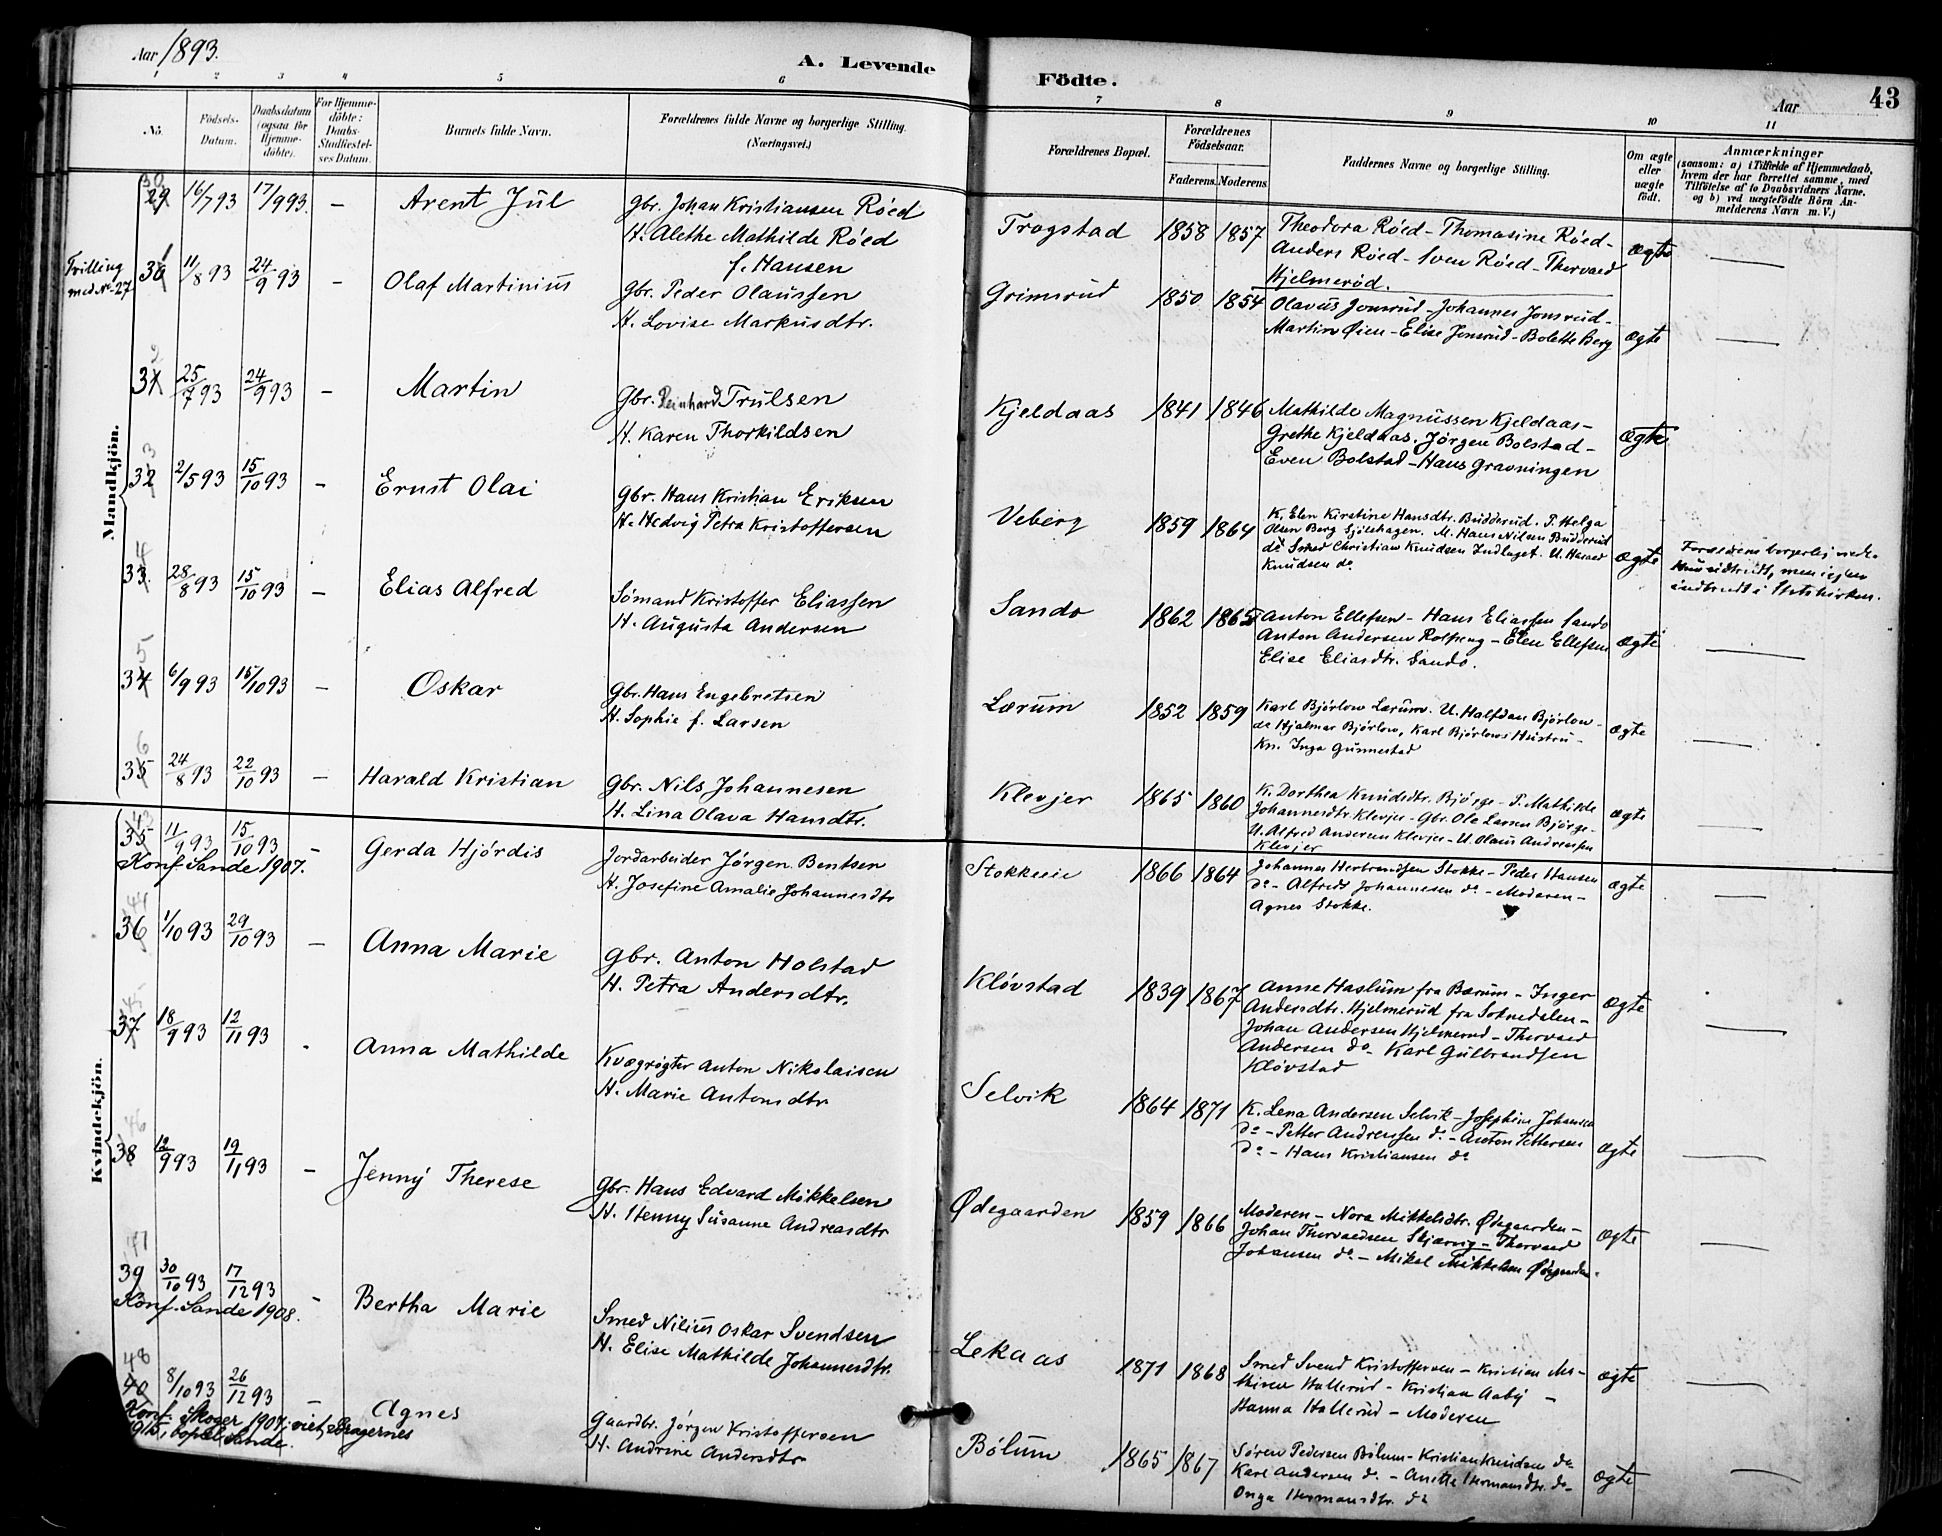 Aar 1893.
A. Levende Födte.
Aar
43
1 2 3 4 5 6 7 8 9 10 11
No.
Födsels-Datum.
Daabsdatum (ogsaa för Hjemme-döbte).
For Hjemme-döbte: Daabs-Stadfæstel-ses Datum.
Barnets fulde Navn.
Forældrenes fulde Navne og borgerlige Stilling. (Næringsvei.)
Forældrenes Bopæl.
Forældrenes Födselsaar.
Faderens. Moderens.
Faddernes Navne og borgerlige Stilling.
Om ægte eller uægte födt.
Anmærkninger
(saasom: a) i Tilfælde af Hjemmedaab, hvem der har forrettet samme, med Tilföielse af to Daabsvidners Navne, og b) ved uægtefödte Börn An-melderens Navn m. V.)
Mandkjön.
29 30 16/7 93 17/9 93. – Arent Jul
Gbr. Johan Kristiansen Röed
H. Alethe Mathilde Röed
f. Hansen
Trogstad 1858 1857
Theodora Röed – Thomasine Röed –
Anders Röed – Sven Röed – Thorvald
Hjelmeröd.
ægte —
Tvilling med No 27
30 1 11/8 93 24/9 93 – Olaf Martinius
Gbr. Peder Olaussen
H. Lovise Markusdtr.
Grimsrud 1850 1854
Olavus Jonsrud – Johannes Jonsrud –
Martin Öien – Elise Jonsrud – Bolette Berg
ægte —
31 2 25/7 93 24/9 93 – Martin
Gbr. Reinhard Trulsen
H. Karen Thorkildsen
Kjeldaas 1841 1846
Mathilde Magnussen Kjeldaas –
Grethe Kjeldaas. Jörgen Bolstad –
Even Bolstad – Hans Gravningen
ægte
32 3 2/5 93 15/10 93 – Ernst Olai
Gbr. Hans Kristian Eriksen
H. Hedvig Petra Kristoffersen
Veberg 1859 1864
K. Elen Kirstine Hansdtr. Budderud. P. Helga
Olsen Berg Sjölshagen. M. Hans Nilsen Budderud
do Smed Christian Knudsen Indlaget. U. Harald
Knudsen do
ægte
Forældrene borgerlig viede.
men igjen
indtraadt i Statskirken.
33. 4 28/8 93 15/10 93 – Elias Alfred
Sömand Kristoffer Eliassen
H. Augusta Andersen
Sando 1862 1865
Anton Ellefsen – Hans Eliassen Sando
Anton Andersen Rolfseng – Elen Ellefsen
Elise Eliasdtr. Sando.
ægte —
34 5 6/9 93 15/10 93 – Oskar
Gbr. Hans Engebretsen
H. Sophie f. Larsen
Lærum 1852 1859
Karl Björlow Lærum. U. Halfdan Björlow –
do Hjalmar Björlow, Karl Björlows Hustru –
Kn. Inga Gunnestad
ægte —
35 6 24/8 93 22/10 93 – Harald Kristian
Gbr. Nils Johannesen
H. Lina Olava Hansdtr.
Klevjer 1865 1860
K. Dorthea Knudsdtr. Björge – P. Mathilde
Johannesdtr Klevjer – Gbr. Ole Larsen Björge –
U. Alfred Andersen Klevjer – U. Olaus Andreassen
Klevjer
ægte —
Kvindekjön.
35 43 11/9 93 15/10 93 – Gerda Hjördis
Konf. Sande 1907.
Jordarbeider Jörgen Bentsen
H. Josefine Amalie Johannesdtr
Stokkeeie 1866 1864
Johannes Herbrandsen Stokke – Peder Hansen
do – Alfred Johannesen do – Moderen –
Agnes Stokke.
ægte —
36 44 1/10 93 29/10 93 – Anna Marie
Gbr. Anton Holstad
H. Petra Andersdtr.
Klövstad 1839 1867
Anne Haslum fra Bærum – Inger
Andersdtr. Hjelmerud fra Sörkedalen –
Johan Andersen Hjelmerud – Thorvald
Andersen do – Karl Gulbrandsen
Klövstad
ægte —
37 45 18/9 93 12/11 93 Anna Mathilde
Kvægrögter Anton Nikolaisen
H. Marie Antonsdtr
Selvik 1864 1871
K. Lena Andersen Selvik – Josephine Johansen
do – Petter Andreassen do – Anton Pettersen
do – Hans Kristiansen do
ægte —
38 46 12/9 93 19/11 93 – Jenny Therese
Gbr. Hans Edvard Mikkelsen
H. Henny Susanne Andreasdtr
Ödegaarden 1859 1866
Moderen – Nora Mikkelsdtr. Ödegaarden –
Johan Thorvaldsen Skjærvig – Thorvald
Johansen do – Mikal Mikkelsen Ödegaarden.
ægte —
39 47 30/10 93 17/12 93 – Bertha Marie
Konf. Sande 1908.
Smed Nilius Oskar Svendsen
H. Elise Mathilde Johannesdtr.
Lekaas 1871 1868
Smed Svend Kristoffersen – Kristian Ma-
thisen Hallerud – Kristian Aaby –
Hanna Hallerud – Moderen
ægte —
40 48 8/10 93 26/12 93 – Agnes
Konf. Skoger 1907; viet, Bragernes
1915, bopæl Sande.
Gaardbr. Jörgen Kristoffersen
H. Andrine Andersdtr
Bölum 1865 1867
Sören Pedersen Bölum – Kristian Knudsen do
Karl Andersen do – Anette Hermansdtr. do –
Inga Hermansdtr. do
ægte —